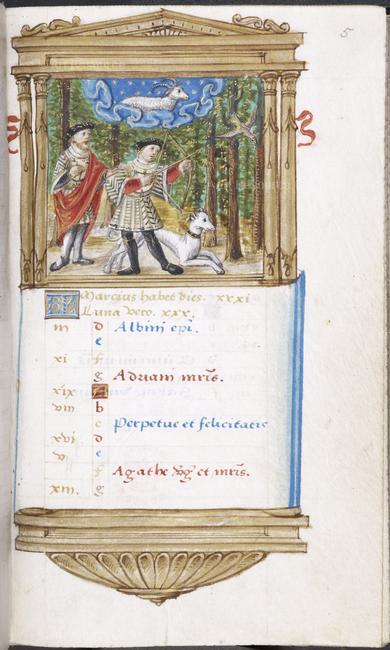 5
KL Marcius habet dies. xxxi
Luna vero. xxx.
iii d Albini epi.
e
xi f
g Adriani mris.
xix A
viii b
c Perpetue et felicitatis
xvi d
v e
f Agathe vg et mris.
xiii. g